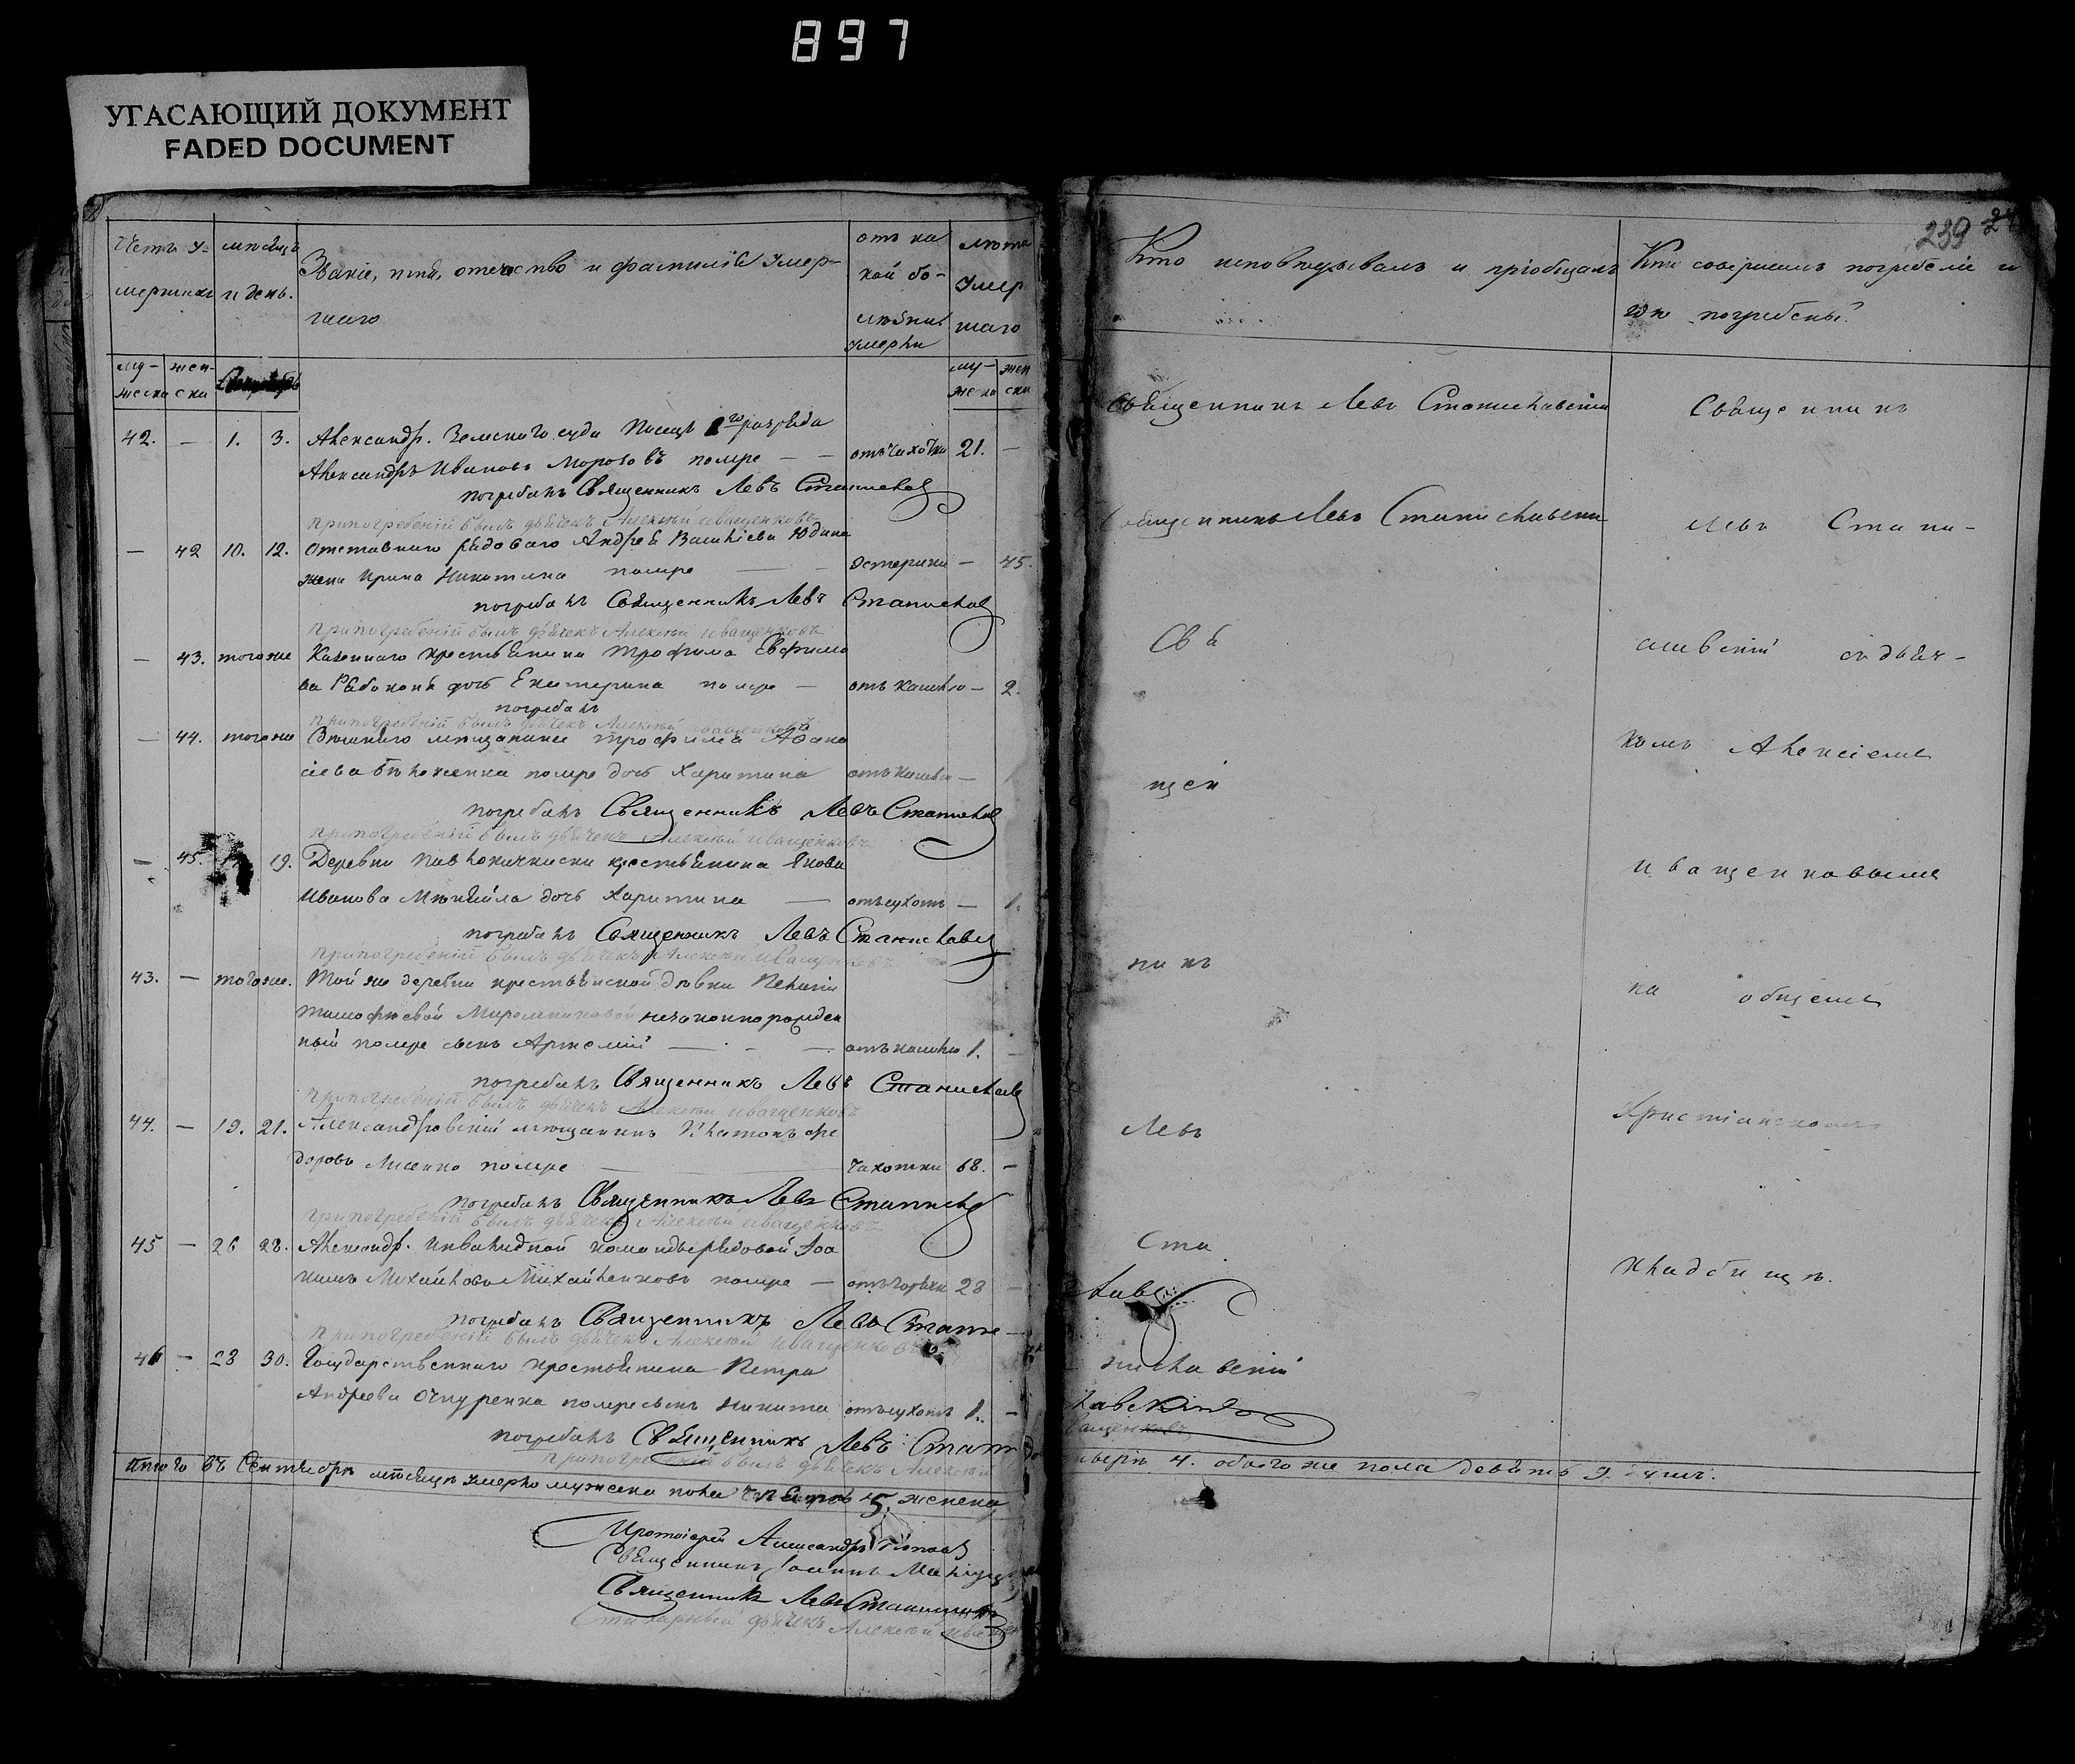 897
УГАСАЮЩИЙ ДОКУМЕНТ
FADED DOCUMENT
239
Счетъ у-
мершихъ
мѣсяцъ
и день.
Званіе, имя, отечество и фамилія умер-
шаго
отъ ка
кой бо-
лѣзни
умерли
лѣта
умер
шаго
му-
жеска
жен-
ска
му-
жеска
жен
ска
42. — 1. 3. Александр. Земскаго суда Писецъ 1го разряда
Александръ Ивановъ Морозовъ помре — — отъ чахотки 21. —
погребалъ Священникъ Левъ Станиславс
при погребеніи былъ дьячекъ Алексѣй Иващенковъ
— 42 10. 12. Отставнаго рядоваго Андрея Василіева Юдина
жена Ирина Никитина помре — истерики — 45.
погребалъ Священникъ Левъ Станислав
при погребеніи былъ дьячекъ Алексѣй Иващенковъ
— 43. тогоже Казеннаго крестьянина Трофима Евфимо
ва Рябоконя дочь Екатерина помре — отъ кашлю — 2.
погребалъ
при погребеніи былъ дьячекъ Алексѣй Иващенковъ
— 44. тогоже мѣщанина Трофима Афана
сіева Бѣложенка помре дочь Харитина отъ кашлю —
погребалъ Священникъ Левъ Станислав
при погребеніи былъ дьячекъ Алексѣй Иващенковъ
— 45. 19. Деревни крестьянина Якова
Иванова дочь Харитина — отъ сухотъ — 1.
погребалъ Священникъ Левъ Станиславс
при погребеніи былъ дьячекъ Алексѣй Иващенковъ
43. — тогоже. Той же деревни крестьянской дѣвки Пелагіи
Тимофѣевой Мирошниковой незаконнорожден
ный помре сынъ Артемій — отъ кашлю 1. —
погребалъ Священникъ Левъ Станислав
при погребеніи былъ дьячекъ Алексѣй Иващенковъ
44. — 19. 21. Александровскій мѣщанинъ Платонъ Фе
доровъ Лисенко помре — чахотки 68. —
погребалъ Священникъ Левъ Станислав
при погребеніи былъ дьячекъ Алексѣй Иващенковъ
45 — 26 28. Александр. Инвалидной команды рядовой Іоа
кимъ Михайловъ Михайленковъ помре — отъ горячки 28 —
погребалъ Священникъ Левъ Стани-
при погребеніи былъ дьячекъ Алексѣй Иващенковъ
46 — 28 30. Государственнаго крестьянина Петра
Андреева помре сынъ Никита отъ сухотъ 1. —
погребалъ Священникъ Левъ Стани
при погребеніи былъ дьячекъ Алексѣй
Итого въ Сентябрѣ мѣсяцѣ умерло мужеска пола пять 5. женска
Протоіерей Александръ Поповъ
Священникъ Іоаннъ
Священникъ Левъ Станиславскій
Стихарный дьячекъ Алексѣй Иващен
Кто исповѣдывалъ и пріобщалъ
Священникъ Левъ Станиславскій
Священникъ Левъ Станиславски
Свя
щен
никъ
Левъ
Ста
лавс
ниславскій
лавскій
ващенковъ
четыре 4. обоего же пола девять 9. душъ.
Кто совершилъ погребеніе и
гдѣ погребены?
Священникъ
Левъ Стани-
славскій съ дьяч-
комъ Алексіемъ
Иващенковымъ
на общемъ
Христіанскомъ
кладбищѣ.